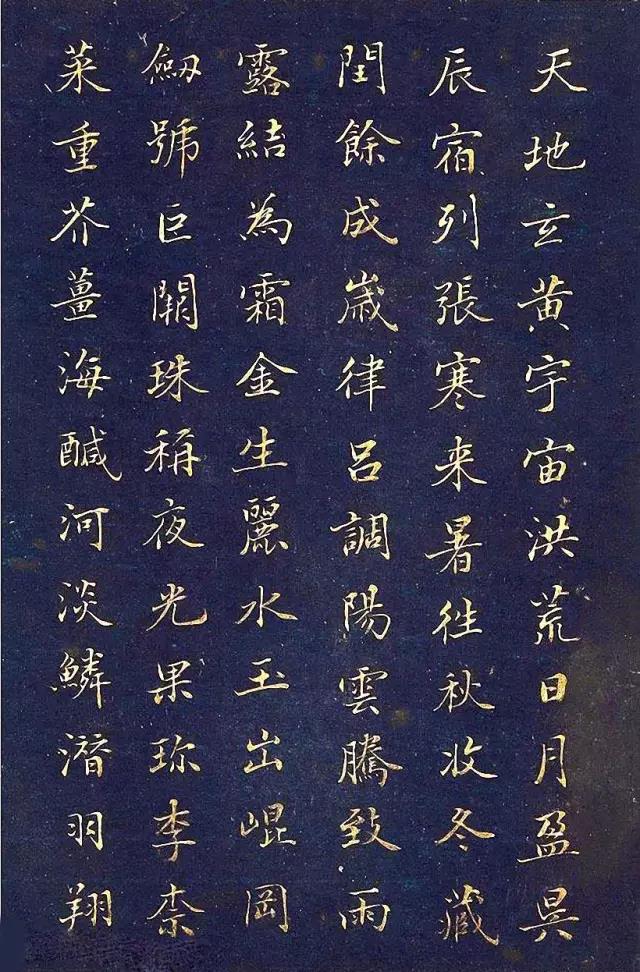 天地玄黄宇宙洪荒日月盈昃
辰宿列張寒来暑往秋收冬藏
閏餘成歲律呂調陽雲騰致雨
露結為霜金生麗水玉出崐岡
劔號巨闕珠稱夜光果珎李柰
菜重芥薑海鹹河淡鱗潛羽翔